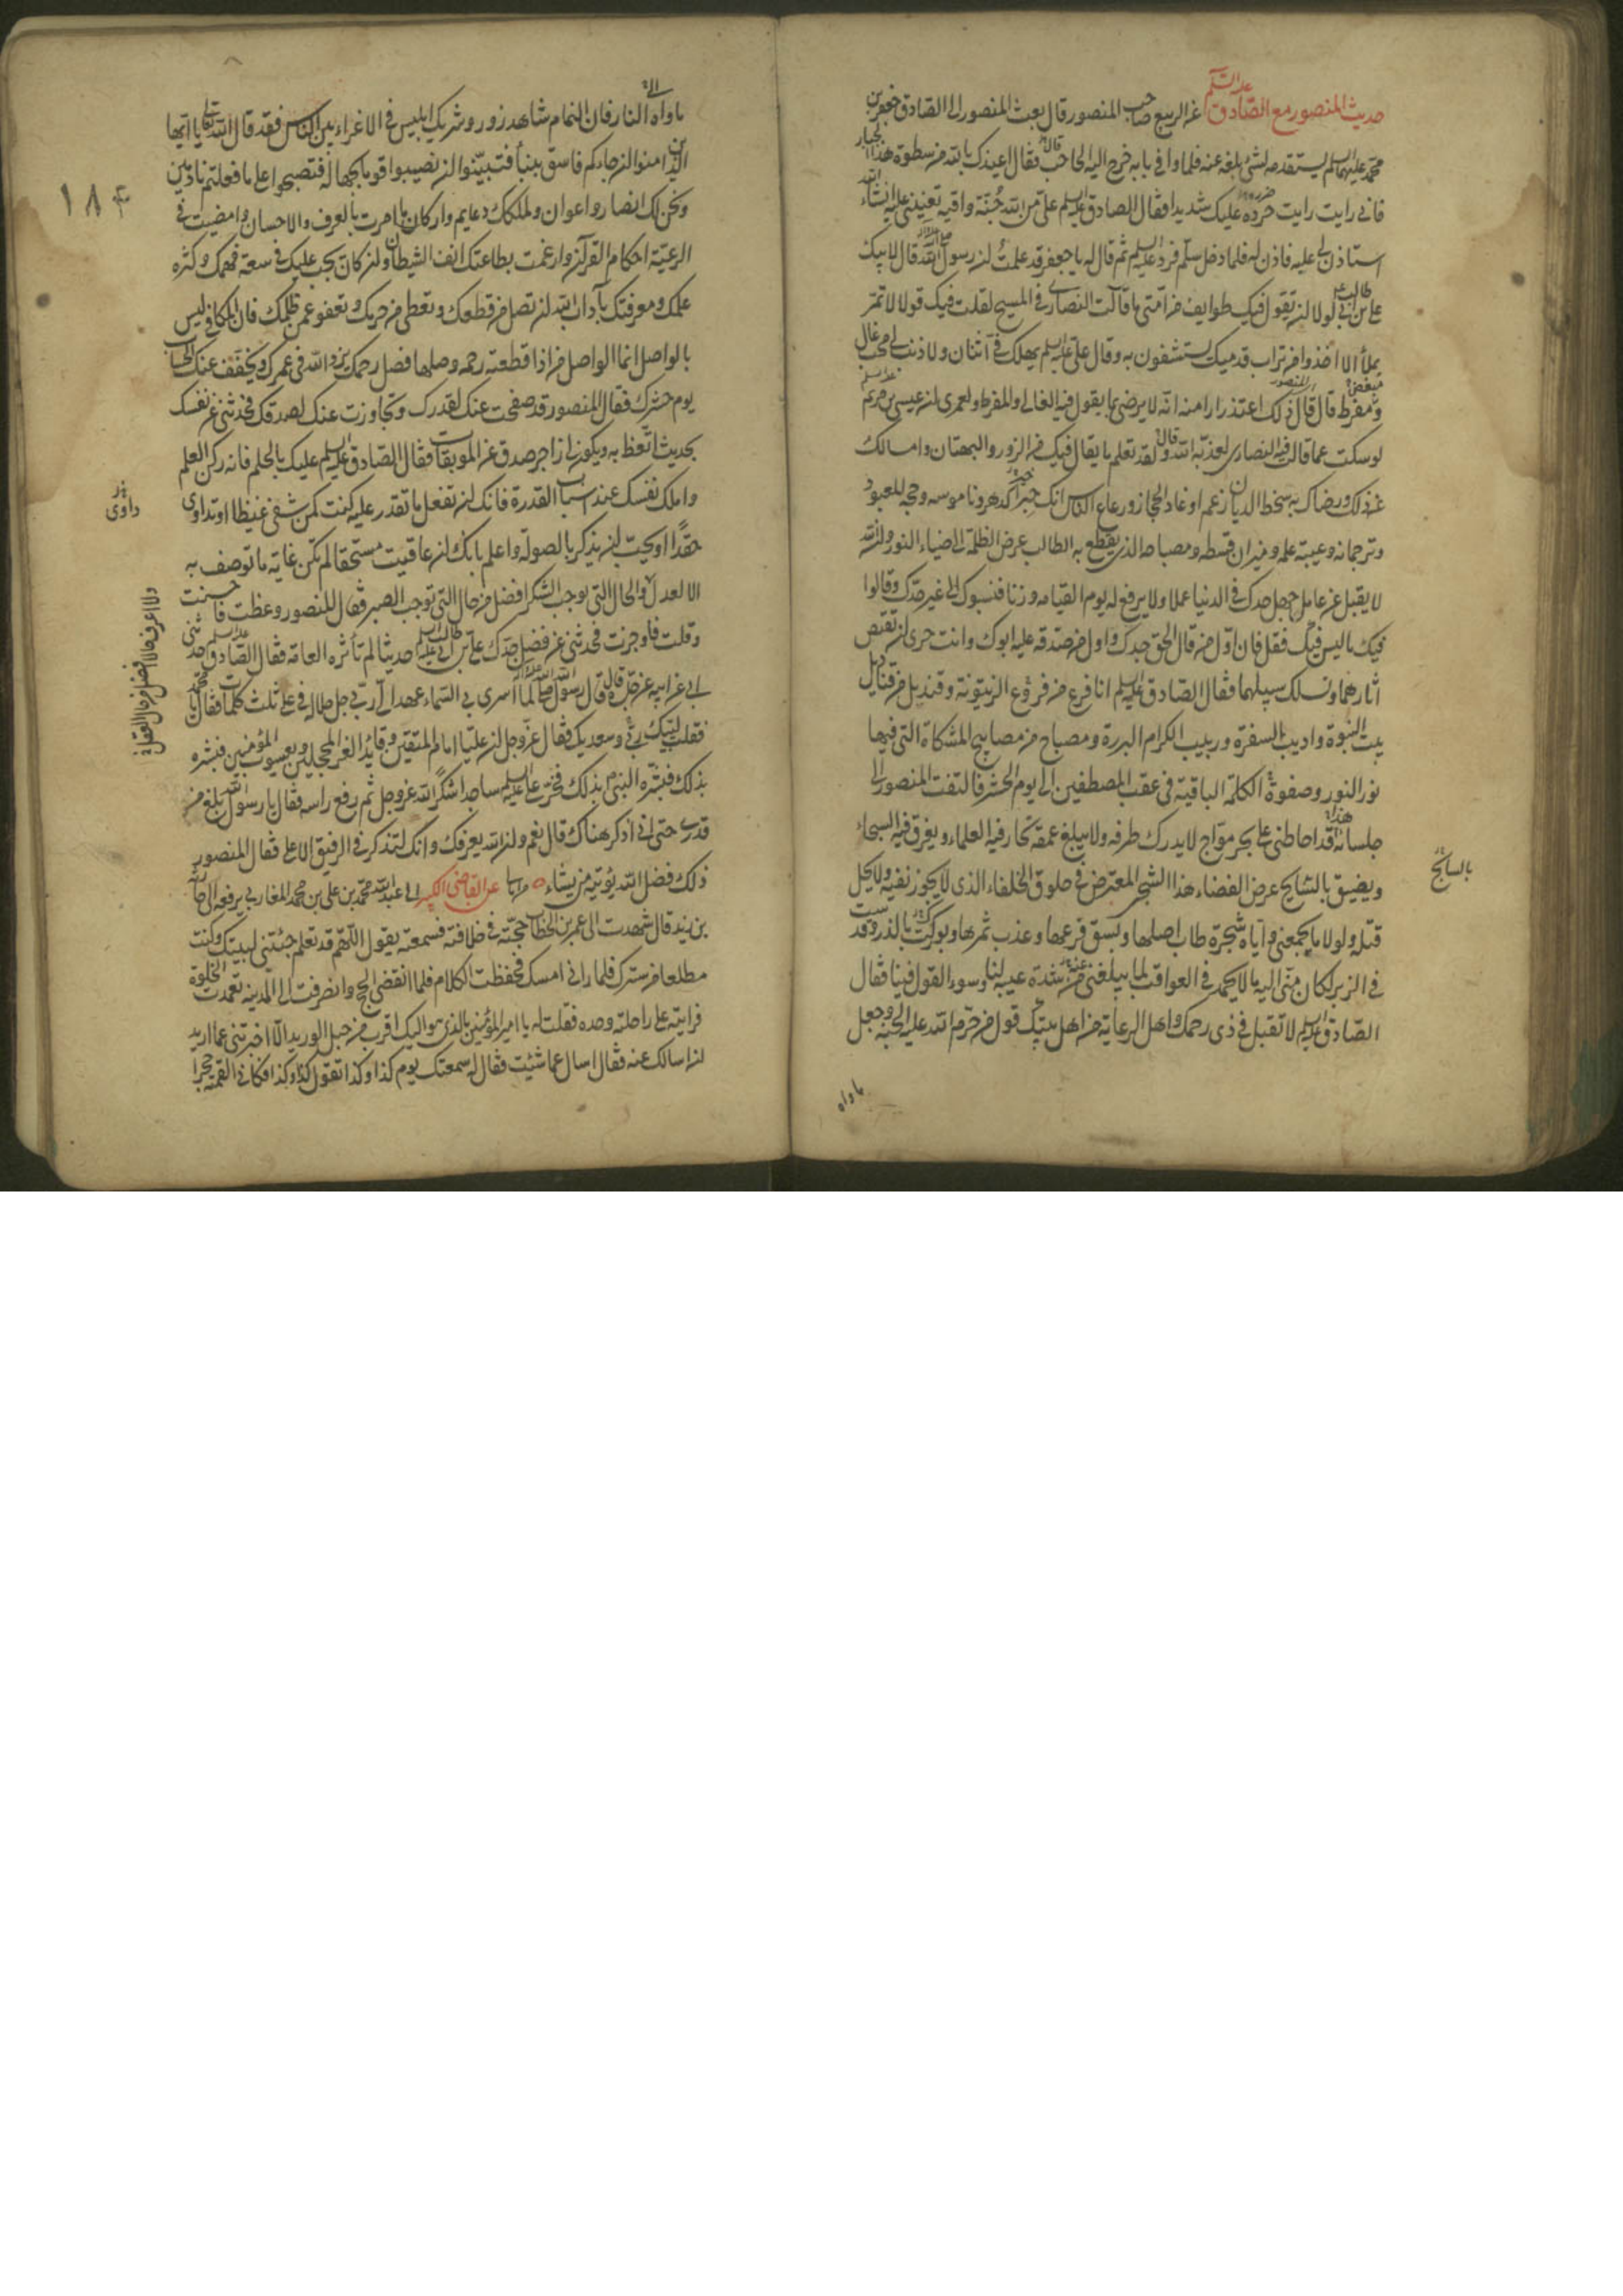 حديث المنصور مع الصادق عليه السلم عن الربيع صاحب المنصور قال بعث المنصور الى الصادق جعفر بن
محمد عليهما السلم يستقدمه لشئ بلغه عنه فلما وافى بابه خرج اليه الحاجب فقال اعيذك بالله من سطوة هذا الجبار
فاني رايت رايت حرده عليك شديدا فقال الصادق عليه السلم علىّ من الله جُنّة واقية تعينني عليه انشاء الله
استاذن لي عليه فاذن له فلما دخل سلّم فرد عليه السلم ثم قال له يا جعفر قد علمت ان رسول الله قد قال لابيك
علي بن ابي طالب لولا ان تقول فيك طوايف من امتي ما قالت النصارى في المسيح لقلت فيك قولا لا تمر
بملأ الا اخذوا من تراب قدميك يستشفون به وقال علي عليه السلم يهلك فيّ اثنان ولا ذنب لي محب غال
ومبغض مفرط قال قال المنصور ذلك اعتذرارا منه انه لا يرضى بما يقول فيه الغالي والمفرط ولعمري ان عيسى بن مريم
لو سكت عما قالت فيه النصارى لعذبه الله قال ولقد تعلم ما يقال فيك من الزور والبهتان وامسالك
عن ذلك ورضاك به سخط الديان زعم اوغاد الحجاز ورعاع الناس انك حبر الدهر وناموسه وحجه المعبود
وترجمانه وعيبة علمه وميزان قسطه ومصباحه الذي يقطع به الطالب عرض الظلمة الى ضياء النور وان الله
لا يقبل من عامل جهل حدك في الدنيا عملا ولا يرفع له يوم القيامه وزنا فنسبوك الى غير حدّك وقالوا
فيك ما ليس فيك فقل فان اوّل من قال الحق جدك واول من صدقه عليه ابوك وانت حرى ان تقتص
اثارهما وتسلك سبيلهما فقال الصادق عليه السلم انا فرع من فروع الزيتونة وقنديل من قناديل
بيت النبوة واديب السفرة وربيب الكرام البررة ومصباح من مصابيح المشكاة التي فيها
نور النور وصفوة الكلمة الباقية في عقب المصطفين الى يوم الحشر فالتفت المنصور الى
جلسائه فقال هذا قد احاطني على بحر موّاج لا يدرك طرفه ولا يبلغ عمقه تحار فيه العلماء ويغرق فيه السبحاء
ويضيق بالسابح عرض الفضاء هذا الشجى المعترض في حلوق الخلفاء الذي لا يجوز نفيه ولا يحل
قتله ولولا ما يجمعني واياه شجرة طاب اصلها وبسق فرعها وعذب ثمرها وبوركت بالذر وقدست
في الزبر لكان مني اليه ما لا يحمد في العواقب لما يبلغني عنه من شدة عيبه لنا وسوء القول فينا فقال
الصادق عليه السلم لا تقبل في ذي رحمك واهل الرعاية من اهل بيتك قول من حرم الله عليه الجنة وجعل
بالسابح
ماواه
١٨٤
ماواه النار فان النمام شاهد زور وشريك ابليس في الاغراء بين الناس فقد قال الله تعالى يا ايها
الذين امنوا ان جاءكم فاسق بنبأ فتبيّنوا ان تصيبوا قوما بجهالة فتصبحوا على ما فعلتم نادمين
ونحن لك انصار واعوان ولملكك دعايم واركان ما امرت بالعرف والاحسان وامضيت في
الرعيّة احكام القرآن وارغمت بطاعتك انف الشيطان وان كان يجب عليك في سعة فهمك وكثره
علمك ومعرفتك بآداب الله ان تصل من قطعك وتعطي من حرمك وتعفو عمن ظلمك فان المكافي ليس
بالواصل انما الواصل من اذا قطعته رحمه وصلها فصل رحمك يزد الله في عمرك ويخفف عنك الحساب
يوم حشرك فقال المنصور قد صفحت عنك لقدرك وتجاوزت عنك لصدقك فحدثني عن نفسك
بحديث اتّعظ به ويكون لي زاجر صدق عن الموبقات فقال الصادق عليه السلم عليك بالحلم فانه ركن العلم
واملك نفسك عند اسباب القدرة فانك ان تفعل ما تقدر عليه كنت كمن شفى غيظا او تداوى
حقدًا او يحبّ ان يذكر بالصولة واعلم بانك ان عاقبت مستحقا لم تكن غاية ما توصف به
الا العدل والحال التي توجب الشكر افضل من حال التي توجب الصبر فقال المنصور وعظت فاحسنت
وقلت فاوجزت فحدثني عن فضل جدك علي بن ابي طالب عليه السلم حديثا لم تأثره العامة فقال الصادق عليه السلم حدثني
ابي عن ابيه عن جده قال قال رسول الله لما اسرى بي السماء عهد الى ربّي جل جلاله في علي ثلث كلمات فقال يا محمد
فقلت لبيك ربي وسعديك فقال عز وجل ان عليا امام المتقين وقايد الغر المحجلين ويعسوب المؤمنين فبشره
بذلك فبشره النبي بذلك فخر علي عليه السلم ساجدا شكرًا لله عز وجل ثم رفع راسه فقال يا رسول الله بلغ من
قدري حتى اني اذكر هناك قال نعم وان الله يعرفك وانك لتذكر في الرفيق الاعلى فقال المنصور
ذلك فضل الله يؤتيه من يشاء عن القاضي الكبير ابي عبد الله محمد بن علي بن محمد المغازلي يرفعه الى حارثة
بن زيد قال شهدت الى عمر بن الخطاب حجّته في خلافته فسمعته يقول اللهم قد تعلم جيئتي لبيتك وكنت
مطلعا من سترك فلما راني امسك فحفظت الكلام فلما انقضى الحج وانصرفت الى المدينه تعمدت الخلوة
فرايته على راحلته وحده فقلت له يا امير المؤمنين بالذي هو اليك اقرب من حبل الوريد الا اخبرتني عما اريد
ان اسالك عنه فقال اسال عما شئت فقال له سمعتك يوم كذا وكذا تقول كذا وكذا فكاني القمته حجرا
داوى